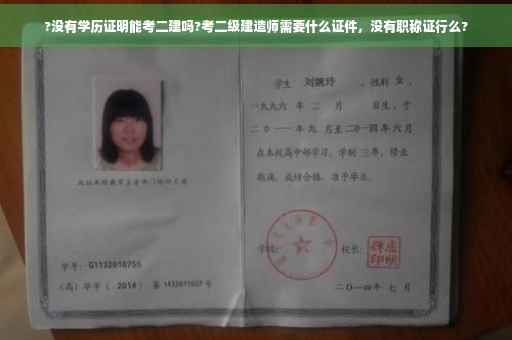 ?没有学历证明能考二建吗?考二级建造师需要什么证件，没有职称证行么?
学生 刘婉玲 ，性别 女 ，
一九九六 年 二 月 日生，于
二〇一一年九 月至二〇一四年 六 月
在本校高中部学习，学制 三年，修业
期满，成绩合格，准予毕业。
学校: 校长:
学号: G1132010755
(高) 毕字 ( 2014 ) 第 1432011027 号
二〇一四年 七 月